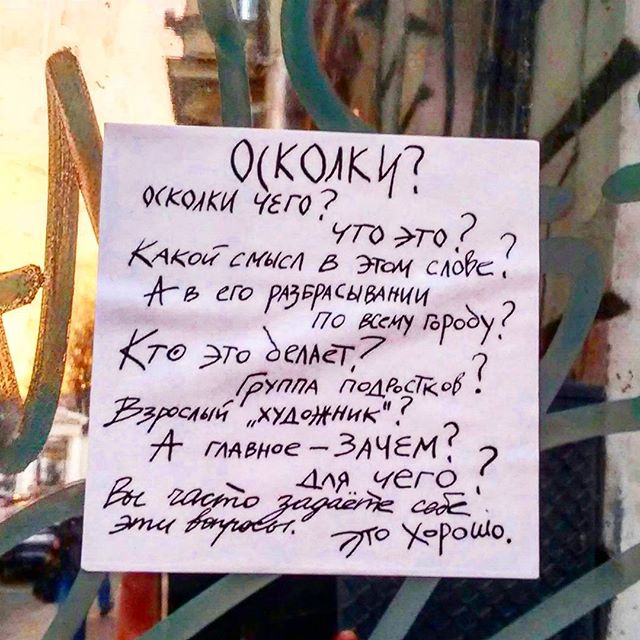 ОСКОЛКИ?
ОСКОЛКИ ЧЕГО?
ЧТО ЭТО?
КАКОЙ СМЫСЛ В ЭТОМ СЛОВЕ?
А В ЕГО РАЗБРАСЫВАНИИ
ПО ВСЕМУ ГОРОДУ?
КТО ЭТО ДЕЛАЕТ?
ГРУППА ПОДРОСТКОВ?
ВЗРОСЛЫЙ „ХУДОЖНИК"?
А ГЛАВНОЕ – ЗАЧЕМ?
ДЛЯ ЧЕГО?
Вы часто задаёте себе
эти вопросы. ЭТО ХОРОШО.